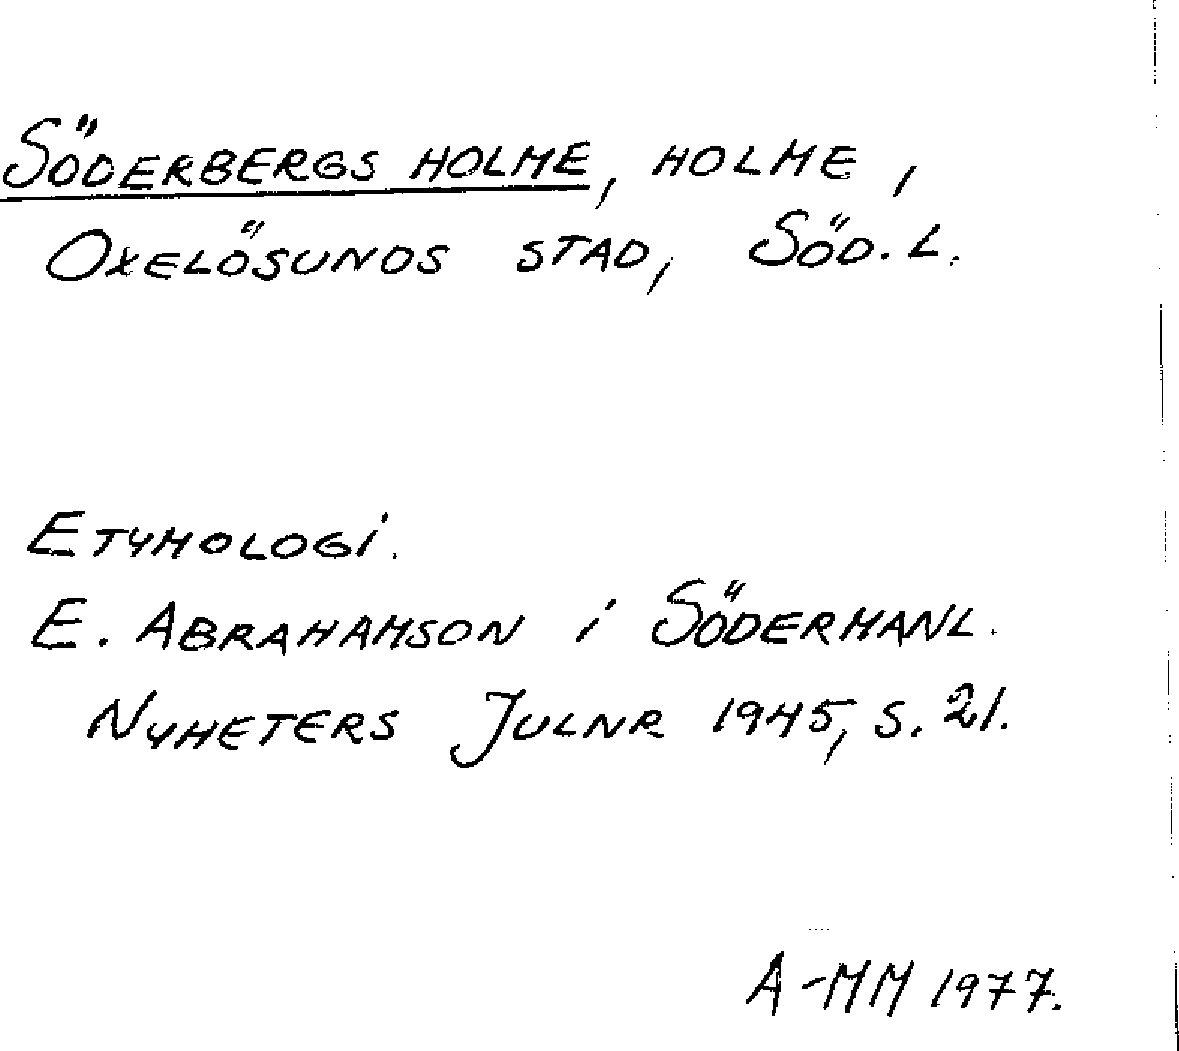 SÖDERBERGS HOLME, HOLME,
OXELÖSUNDS STAD, SÖD.L.
ETYMOLOGI.
E. ABRAHAMSON i SÖDERMANL.
NYHETERS JULNR 1945, S. 21.
A-MM 1977.